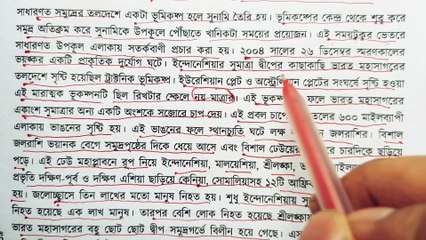 সাধারণত সমুদ্রের তলদেশে একটা ভূমিকম্প হলে সুনামি তৈরি হয়। ভূমিকম্পের কেন্দ্র থেকে শুরু করে
সমুদ্র অতিক্রম করে সুনামিকে উপকূলে পৌঁছাতে খানিকটা সময়ের প্রয়োজন। এই সময়টুকুর ভেতরে
সাধারণত উপকূল এলাকায় সতর্কবাণী প্রচার করা হয়। ২০০৪ সালের ২৬ ডিসেম্বর স্মরণকালের
ভয়ঙ্কর একটি প্রাকৃতিক দুর্যোগ ঘটে। ইন্দোনেশিয়ার সুমাত্রা দ্বীপের কাছাকাছি ভারত মহাসাগরের
তলদেশে সৃষ্টি হয়েছিল ট্রাক্টনিক ভূমিকম্প। ইউরেশিয়ান প্লেট ও অস্ট্রেলিয়ান প্লেটের সংঘর্ষে সৃষ্টি হওয়া
এই মারাত্মক ভূকম্পনটি ছিল রিখটার স্কেলে নয় মাত্রার। এই ভূকম্পনের ফলে ভারত মহাসাগরের
একাংশ সুমাত্রার অন্য একটি অংশকে সজোরে চাপ দেয়। এই প্রবল চাপে তলদেশের ৬০০ মাইলব্যাপী
এলাকায় ভাঙনের সৃষ্টি হয়। এই ভাঙনের ফলে স্থানচ্যুতি ঘটে লক্ষ জলরাশির। বিশাল
জলরাশি ভয়ানক বেগে সমুদ্রপৃষ্ঠের দিকে ধেয়ে আসে এবং বিশাল ঢেউয়ের চারদিকে ছড়িয়ে
পড়ে। এই ঢেউ মহাপ্লাবন রূপ নিয়ে ইন্দোনেশিয়া, মালয়েশিয়া, শ্রীলঙ্কা,
প্রভৃতি দক্ষিণ-পূর্ব ও দক্ষিণ এশিয়া ছাড়িয়ে কেনিয়া, সোমালিয়াসহ ১২টি
জলোচ্ছ্বাসে তিন লাখের মতো মানুষ নিহত হয়। শুধু ইন্দোনেশিয়ায়
নিহত হয়েছে এক লাখ মানুষ। তারপর বেশি লোক নিহত হয়েছে শ্রীলঙ্কায়
ভারত মহাসাগরের বহু ছোট ছোট দ্বীপ সমুদ্রগর্ভে বিলীন হয়ে গেছে।